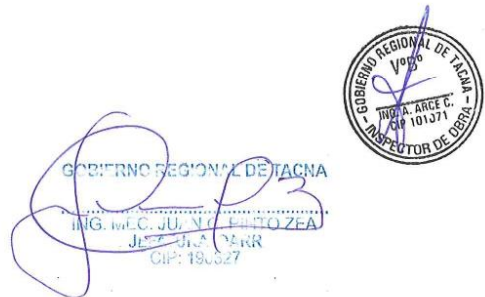 GOBIERNO REGIONAL DE TACNA
VºBº
ING. A. ARCE C.
CIP 101071
INSPECTOR DE OBRA
GOBIERNO REGIONAL DE TACNA
ING. MEC. JUAN C. PINTO ZEA
CIP: